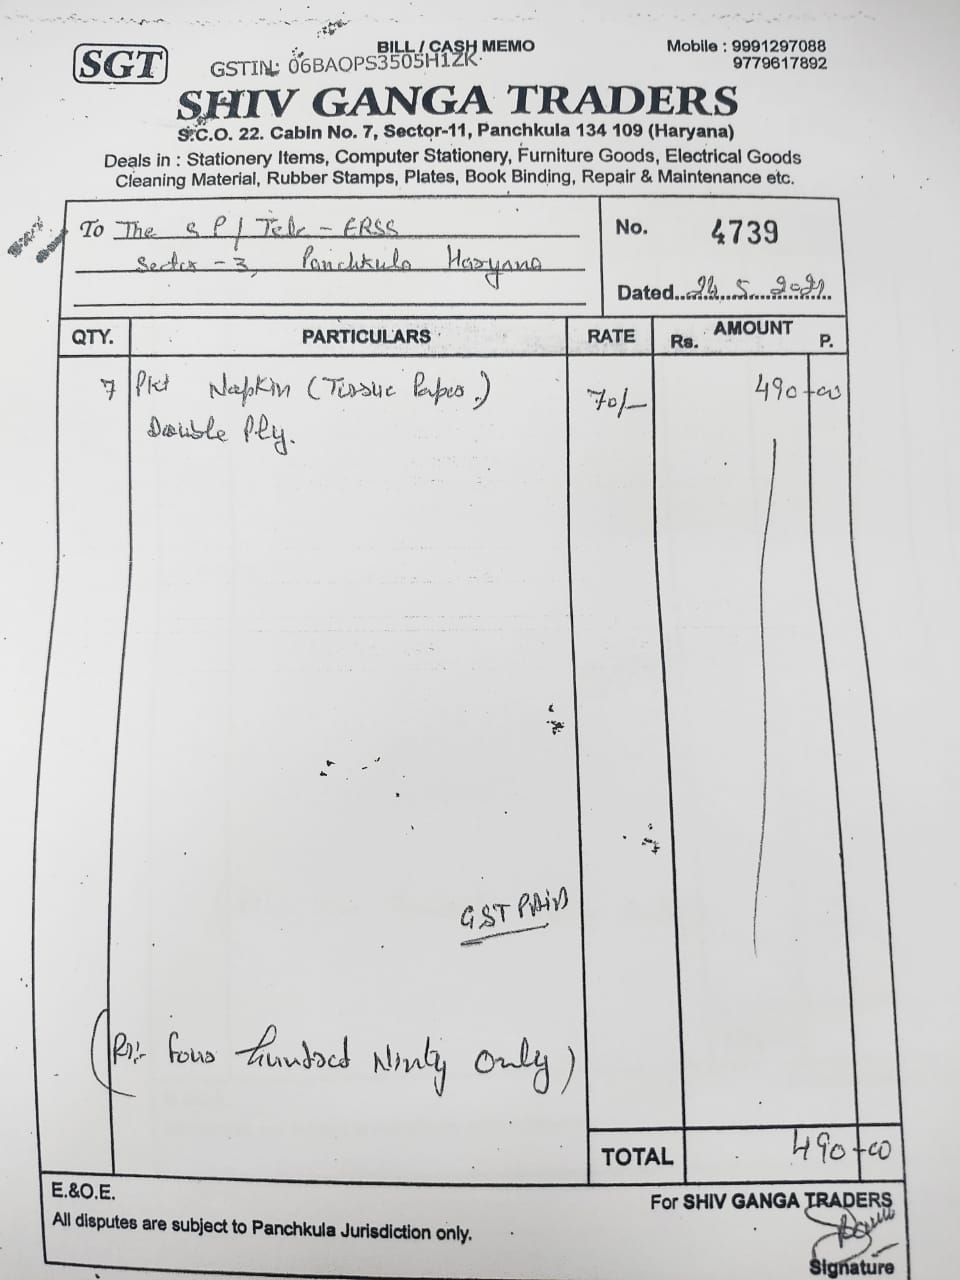 SGT
BILL / CASH MEMO
GSTIN: 06BAOPS3505H1ZK
Mobile : 9991297088
9779617892
SHIV GANGA TRADERS
S.C.O. 22. Cabin No. 7, Sector-11, Panchkula 134 109 (Haryana)
Deals in : Stationery Items, Computer Stationery, Furniture Goods, Electrical Goods
Cleaning Material, Rubber Stamps, Plates, Book Binding, Repair & Maintenance etc.
To The S P / Tele - ERSS
Sector - 3, Panchkula Haryana
No. 4739
Dated.. 24.5.2021
QTY. PARTICULARS RATE AMOUNT
Rs. P.
7 Pkt Napkin (Tissue Paper.) 70/- 490-00
Double Ply.
GST PAID
(Rs:- four hundred Ninty Only)
TOTAL 490-00
E.&O.E.
For SHIV GANGA TRADERS
All disputes are subject to Panchkula Jurisdiction only.
Signature